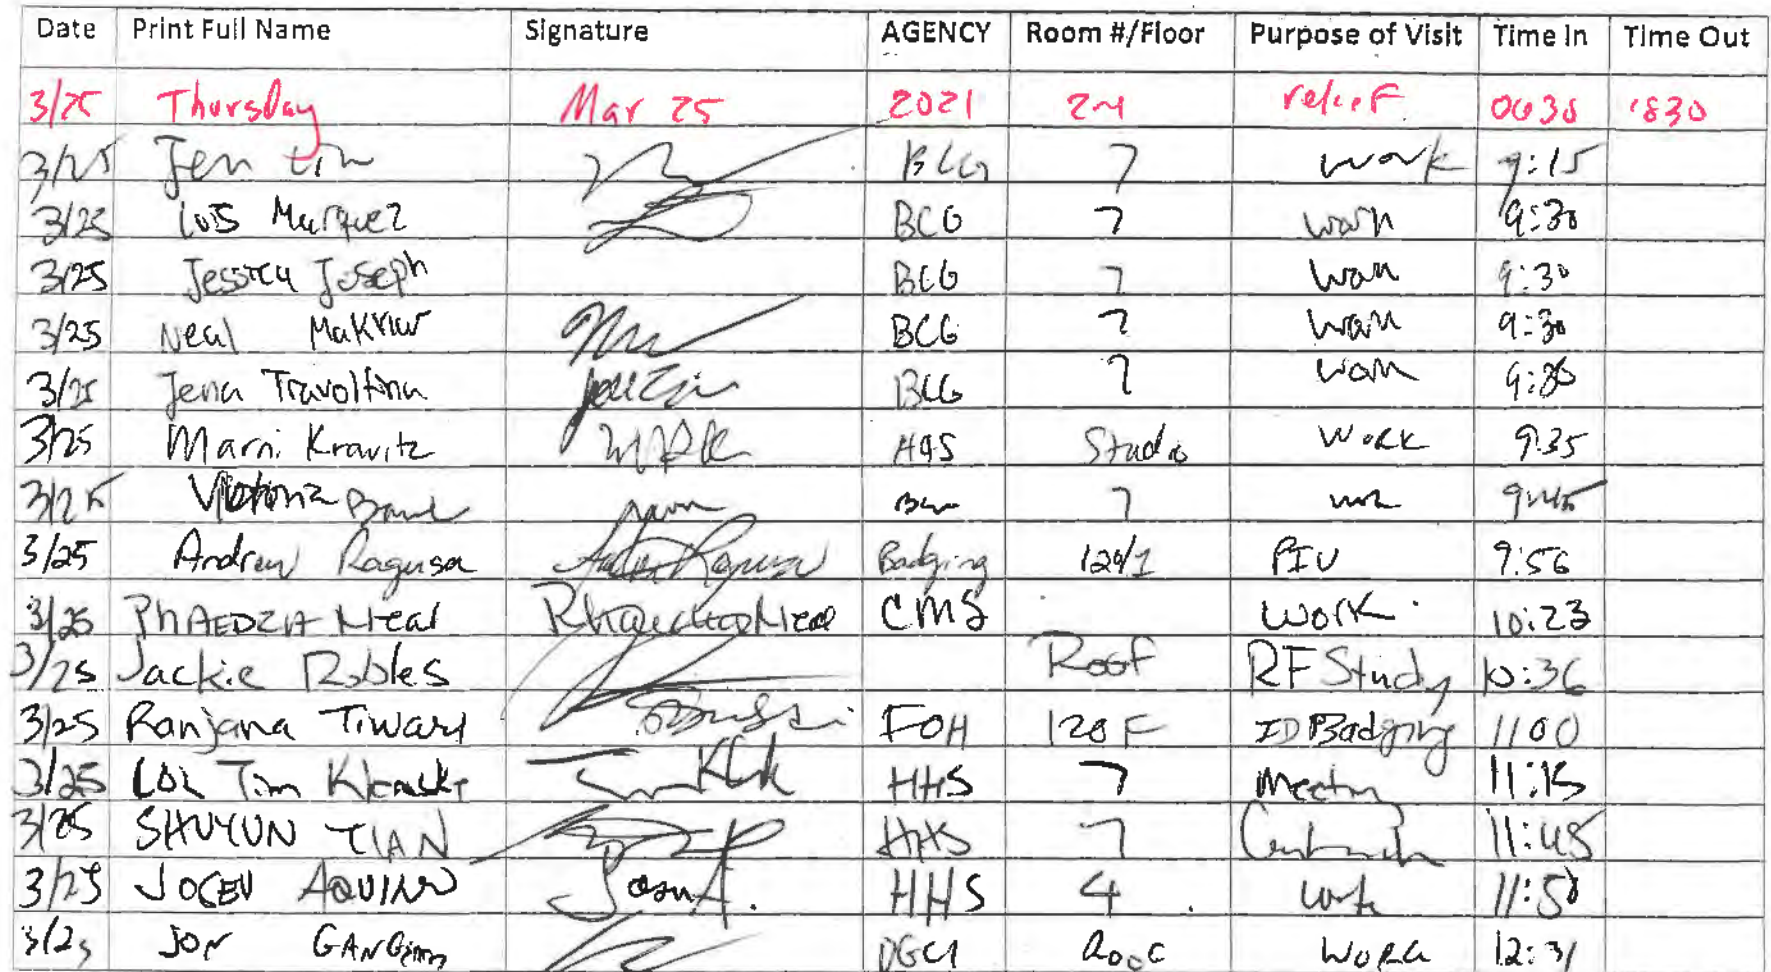 Date Print Full Name Signature AGENCY Room #/Floor Purpose of Visit Time In Time Out
3/25 Thursday Mar 25 2021 relief 0630 1830
3/25 Jen BCG 7 work 9:15
3/25 Luis Marquez BCG 7 work 9:30
3/25 Jessica Joseph BCG 7 work 9:30
3/25 Neal BCG 7 work 9:30
3/25 Jena BCG 7 work
3/25 Marni Kravitz Studio Work 9:35
3/25 Victoria 7 9:45
3/25 Andrew Ragusa Badging 129/1 PIV 9:56
3/25 Neal CMS Work 10:23
3/25 Jackie Robles Roof RF Study 10:36
3/25 Ranjana Tiwari FOH 120F ID Badging 1100
3/25 Tim HHS 7 Meeting 11:15
3/25 SHUYUN TIAN HHS 7 11:45
3/25 AQUINO HHS 4 11:50
3/25 JON WORK 12:31